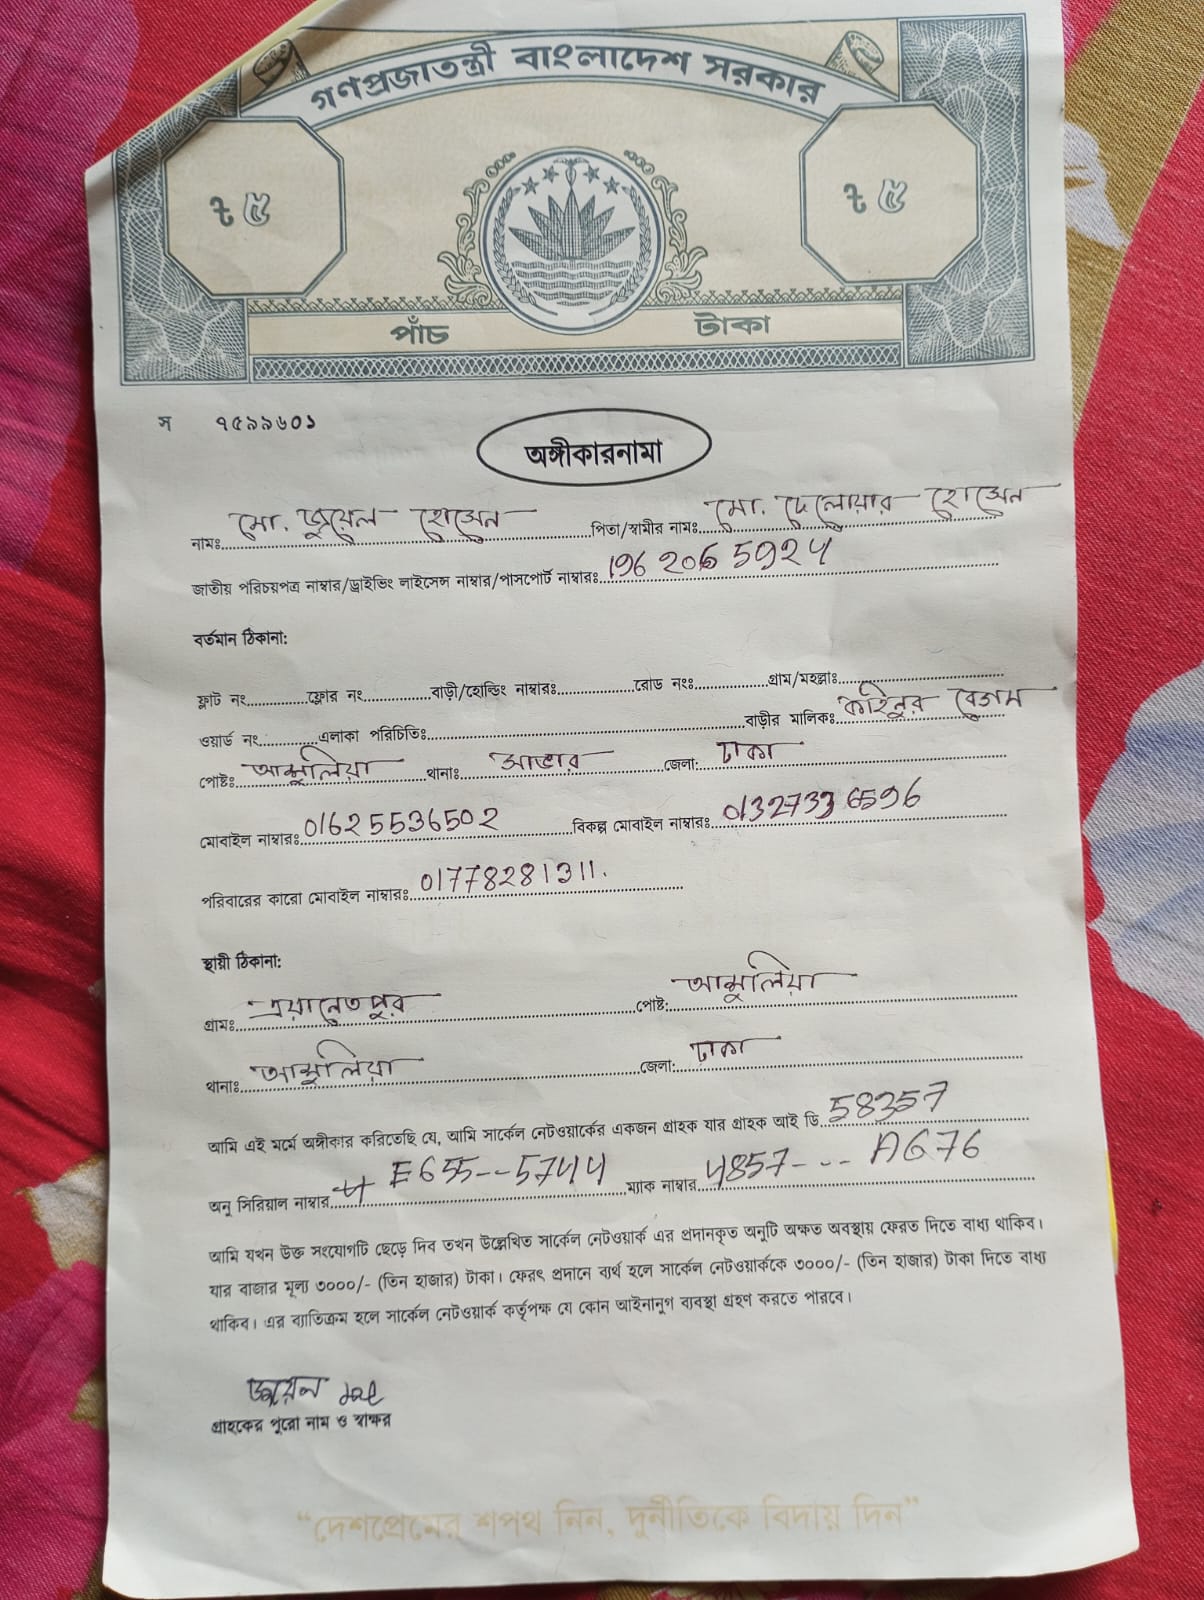 গণপ্রজাতন্ত্রী বাংলাদেশ সরকার
৳ ৫ ৳ ৫
পাঁচ টাকা
স ৭৫৯৯৬০১
অঙ্গীকারনামা
নামঃ মো. জুয়েল হোসেন পিতা/স্বামীর নামঃ মো. দেলোয়ার হোসেন
জাতীয় পরিচয়পত্র নাম্বার/ড্রাইভিং লাইসেন্স নাম্বার/পাসপোর্ট নাম্বারঃ 196 206 5924
বর্তমান ঠিকানা:
ফ্লাট নং ফ্লোর নং বাড়ী/হোল্ডিং নাম্বারঃ রোড নংঃ গ্রাম/মহল্লাঃ
ওয়ার্ড নং এলাকা পরিচিতিঃ বাড়ীর মালিকঃ কহিনুর বেগম
পোষ্টঃ আশুলিয়া থানাঃ সাভার জেলা: ঢাকা
মোবাইল নাম্বারঃ 01625536502 বিকল্প মোবাইল নাম্বারঃ 01327336596
পরিবারের কারো মোবাইল নাম্বারঃ 01778281311.
স্থায়ী ঠিকানা:
গ্রামঃ পোষ্ট: আশুলিয়া
থানাঃ আশুলিয়া জেলা: ঢাকা
আমি এই মর্মে অঙ্গীকার করিতেছি যে, আমি সার্কেল নেটওয়ার্কের একজন গ্রাহক যার গ্রাহক আই ডি 58357
অনু সিরিয়াল নাম্বার F655--5744 ম্যাক নাম্বার 4857--- A676
আমি যখন উক্ত সংযোগটি ছেড়ে দিব তখন উল্লেখিত সার্কেল নেটওয়ার্ক এর প্রদানকৃত অনুটি অক্ষত অবস্থায় ফেরত দিতে বাধ্য থাকিব।
যার বাজার মূল্য ৩০০০/- (তিন হাজার) টাকা। ফেরৎ প্রদানে ব্যর্থ হলে সার্কেল নেটওয়ার্ককে ৩০০০/- (তিন হাজার) টাকা দিতে বাধ্য
থাকিব। এর ব্যাতিক্রম হলে সার্কেল নেটওয়ার্ক কর্তৃপক্ষ যে কোন আইনানুগ ব্যবস্থা গ্রহণ করতে পারবে।
জুয়েল
গ্রাহকের পুরো নাম ও স্বাক্ষর
“দেশপ্রেমের শপথ নিন, দুর্নীতিকে বিদায় দিন”